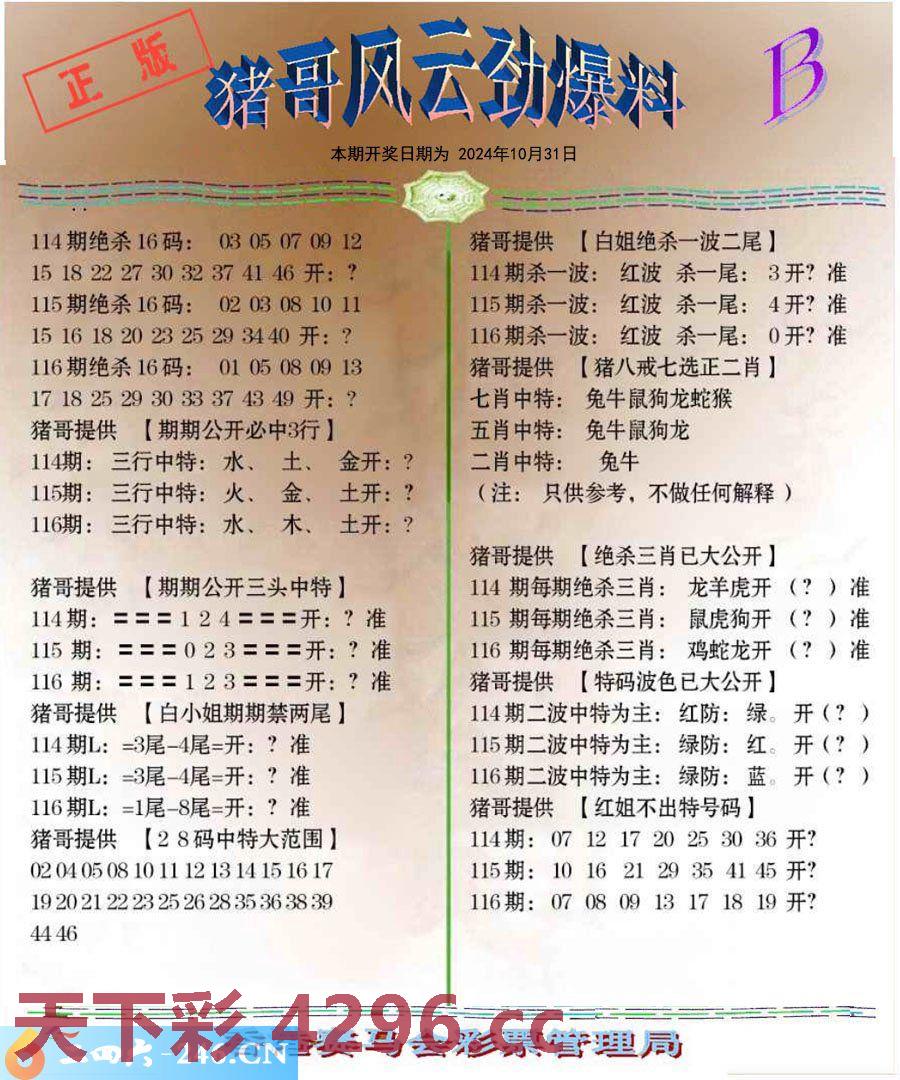 正版
猪哥风云劲爆料
B
本期开奖日期为 2024年10月31日
114期绝杀16码： 03 05 07 09 12
15 18 22 27 30 32 37 41 46 开：?
115期绝杀16码： 02 03 08 10 11
15 16 18 20 23 25 29 34 40 开：?
116期绝杀16码： 01 05 08 09 13
17 18 25 29 30 33 37 43 49 开：?
猪哥提供 【期期公开必中3行】
114期：三行中特：水、 土、 金开：?
115期：三行中特：火、 金、 土开：?
116期：三行中特：水、 木、 土开：?
猪哥提供 【期期公开三头中特】
114期：〓〓〓1 2 4〓〓〓开：? 准
115 期：〓〓〓0 2 3〓〓〓开：? 准
116 期：〓〓〓1 2 3〓〓〓开：? 准
猪哥提供 【白小姐期期禁两尾】
114期L：=3尾–4尾=开：? 准
115期L：=3尾–4尾=开：? 准
116期L：=1尾–8尾=开：? 准
猪哥提供 【2 8码中特大范围】
02 04 05 08 10 11 12 13 14 15 16 17
19 20 21 22 23 25 26 28 35 36 38 39
44 46
猪哥提供 【白姐绝杀一波二尾】
114期杀一波： 红波 杀一尾： 3开? 准
115期杀一波： 红波 杀一尾： 4开? 准
116期杀一波： 红波 杀一尾： 0开? 准
猪哥提供 【猪八戒七选正二肖】
七肖中特： 兔牛鼠狗龙蛇猴
五肖中特： 兔牛鼠狗龙
二肖中特： 兔牛
（注： 只供参考，不做任何解释 ）
猪哥提供 【绝杀三肖已大公开】
114 期每期绝杀三肖： 龙羊虎开 （? ）准
115 期每期绝杀三肖： 鼠虎狗开 （? ）准
116 期每期绝杀三肖： 鸡蛇龙开 （? ）准
猪哥提供 【特码波色已大公开】
114期二波中特为主： 红防： 绿。开（? ）
115期二波中特为主： 绿防： 红。开（? ）
116期二波中特为主： 绿防： 蓝。开（? ）
猪哥提供 【红姐不出特号码】
114期： 07 12 17 20 25 30 36 开?
115期： 10 16 21 29 35 41 45 开?
116期： 07 08 09 13 17 18 19 开?
天下彩 4296.cc
二四六-246.CN
马会彩票管理局